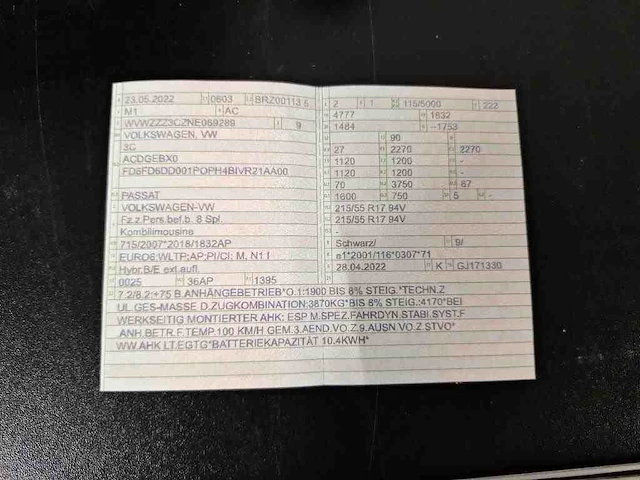 23.05.2022 0603 BRZ00113 6
M1 AC
WVWZZZ3CZNE069289 9
VOLKSWAGEN, VW
3C
ACDGEBX0
FD6FD6DD001POPH4BIVR21AA00
PASSAT
VOLKSWAGEN-VW
Fz.z.Pers.bef.b. 8 Spl.
Kombilimousine
715/2007*2018/1832AP
EURO6;WLTP;AP;PI/CI; M, N1 I
Hybr.B/E ext.aufl.
0025 36AP 1395
2 1 115/5000 222
4777 1832
1484 -1753
90
27 2270 2270
1120 1200 -
1120 1200 -
70 3750 67
1600 750 5 -
215/55 R17 94V
215/55 R17 94V
-
Schwarz/ 9/
e1*2001/116*0307*71
28.04.2022 K GJ171330
7.2/8.2:+75 B.ANHÄNGEBETRIEB*O.1:1900 BIS 8% STEIG.*TECHN.Z
UL GES-MASSE D.ZUGKOMBINATION:3870KG*BIS 8% STEIG.:4170*BEI
WERKSEITIG MONTIERTER AHK: ESP M.SPEZ.FAHRDYN.STABI.SYST.F
ANH.BETR.F.TEMP.100 KM/H GEM.3.AEND.VO.Z.9.AUSN VO.Z STVO*
WW.AHK LT.EGTG*BATTERIEKAPAZITÄT 10.4KWH*